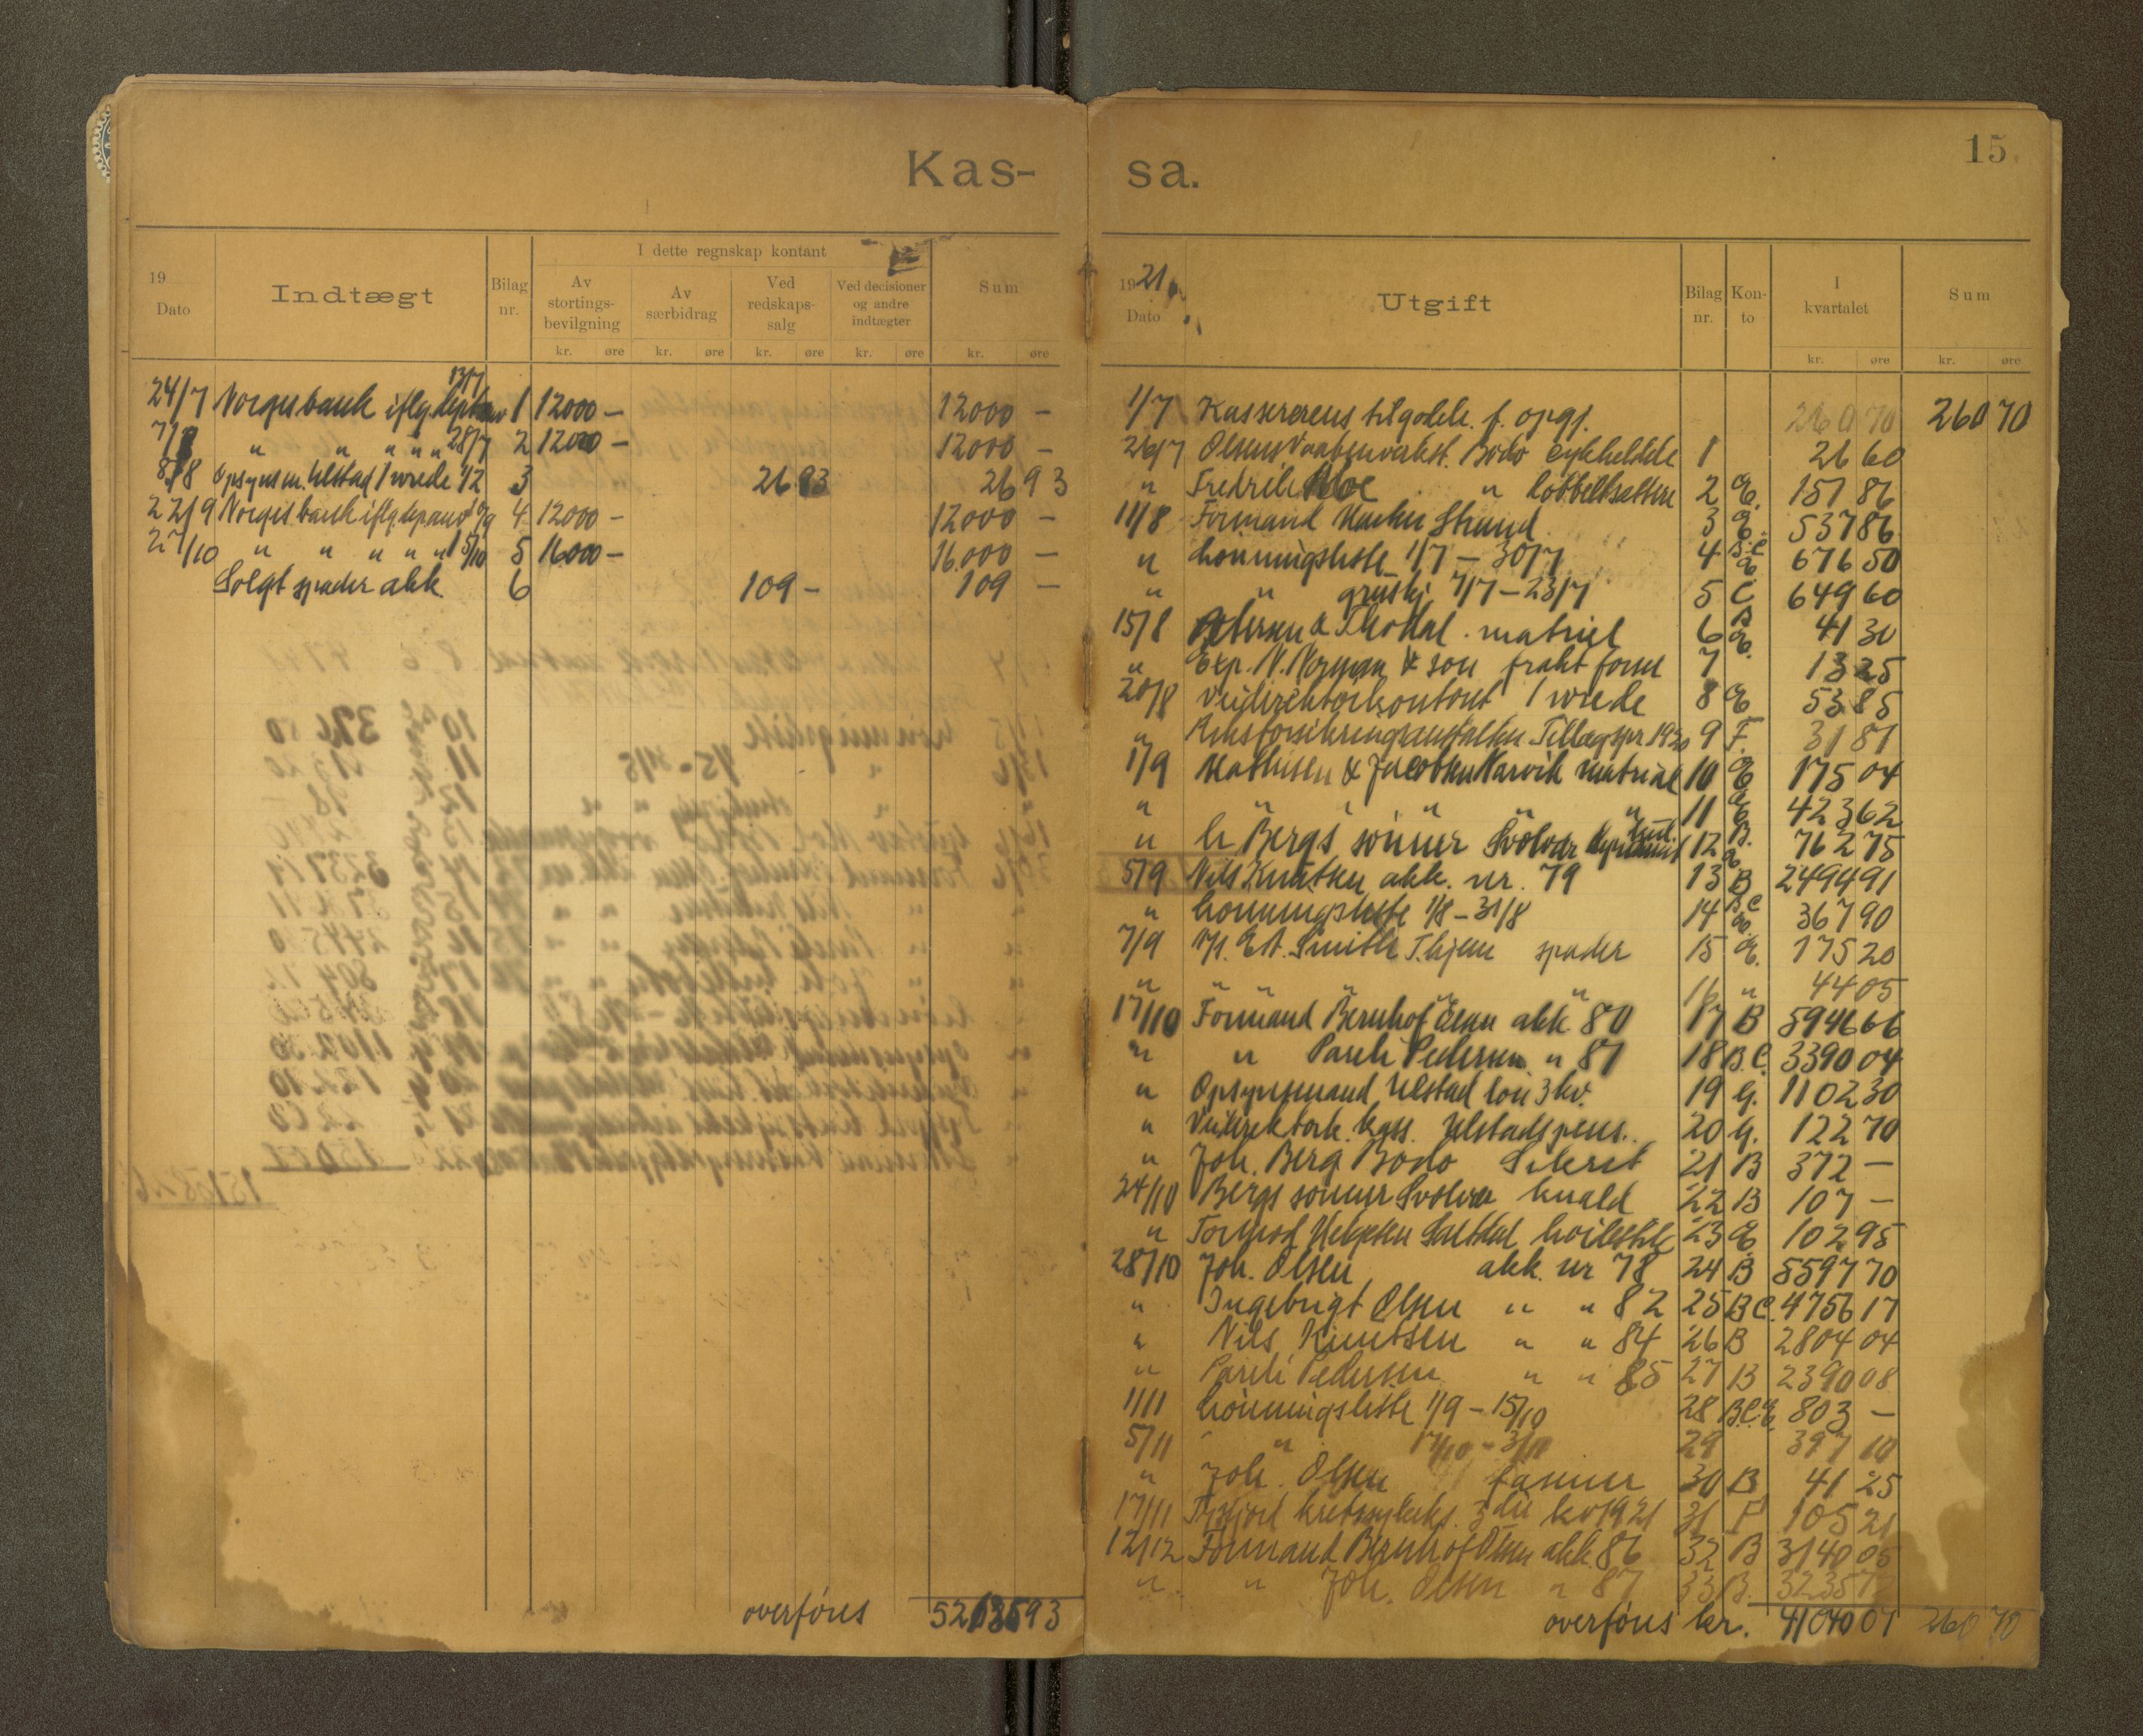 Kas-
I dette regnskap kontant
19
Dato
Indtægt
Bilag nr.
Av stortings-bevilgning
Av særbidrag
Ved redskaps-salg
Ved decisioner og andre indtægter
Sum
kr. øre kr. øre kr. øre kr. øre kr. øre
13/7
24/7 Norges bank iflg. 1 12000 – 12000 –
7/8 " " " " " 28/7 2 12000 – 12000 –
8/8 Opsynsm. Ulstad 1 vrede 3 26 93 26 93
22/9 Norges bank iflg. 4 12000 – 12000 –
27/10 " " " " " 15/10 5 16000 – 16.000 –
Solgt spader akk. 6 109 – 109 –
overføres 52135 93
sa.
15.
1921
Dato
Utgift
Bilag nr.
Kon-to
I kvartalet
Sum
kr. øre kr. øre
1/7 Kassererens tilgodeh. f. opgj. 260 70 260 70
26/7 Olsens Vaabenverkst. Bodø 1 26 60
" Fredrik " 2 E. 151 86
11/8 Formand Strand 3 E. 537 86
" Lønningsliste 1/7 – 30/7 4 B.C. E. 676 50
" " 7/7 – 23/7 5 C 649 60
15/8 & matriel 6 B E. 41 30
" Exp. N. Norman & søn frakt 7 13 25
20/8 Veidirektørkontoret 1 vrede 8 E 53 85
" Riksforsikringsanstalten Tillægspr 1920 9 F. 31 81
1/9 Mathisen & Jacobsen Narvik matriel 10 E 175 04
" " " " " 11 E 423 62
" Bergs sønner Svolvær 12 B. E. 762 75
5/9 Nils Knutsen akk. nr. 79 13 B 2494 91
" Lønningsliste 1/8 – 31/8 14 B.C. E. 367 90
7/9 E.A. Smith T.hjem spader 15 E. 175 20
" " " " " 16 " 44 05
17/10 Formand Bernhof Olsen akk. 80 17 B 5946 66
" " Pareli Pedersen " 81 18 B.C. 3390 04
" Opsynsmand Ulstad løn 3 kv. 19 G. 1102 30
" Veidirektørk. kass. Ulstads pens. 20 G. 122 70
" Joh. Berg Bodø 21 B 372 –
24/10 Bergs sønner Svolvær knald 22 B 107 –
" Saltdal 23 E 102 95
28/10 Joh. Olsen akk. nr 78 24 B 5597 70
" Ingebrigt Olsen " " 82 25 B.C. 4756 17
" Nils Knutsen " " 84 26 B 2804 04
" Pareli Pedersen " " 85 27 B 2390 08
1/11 Lønningsliste 1/9 – 15/10 28 B.C.E. 803 –
5/11 " 17/10 – 3/11 29 397 10
" Joh. Olsen 30 B 41 25
17/11 Tysfjord kretssykek. 3die kv 1921 31 F 105 21
12/12 Formand Bernhof Olsen akk. 86 32 B 3140 05
" " Joh. Olsen " 87 33 B.
overføres kr. 41040 01 260 70